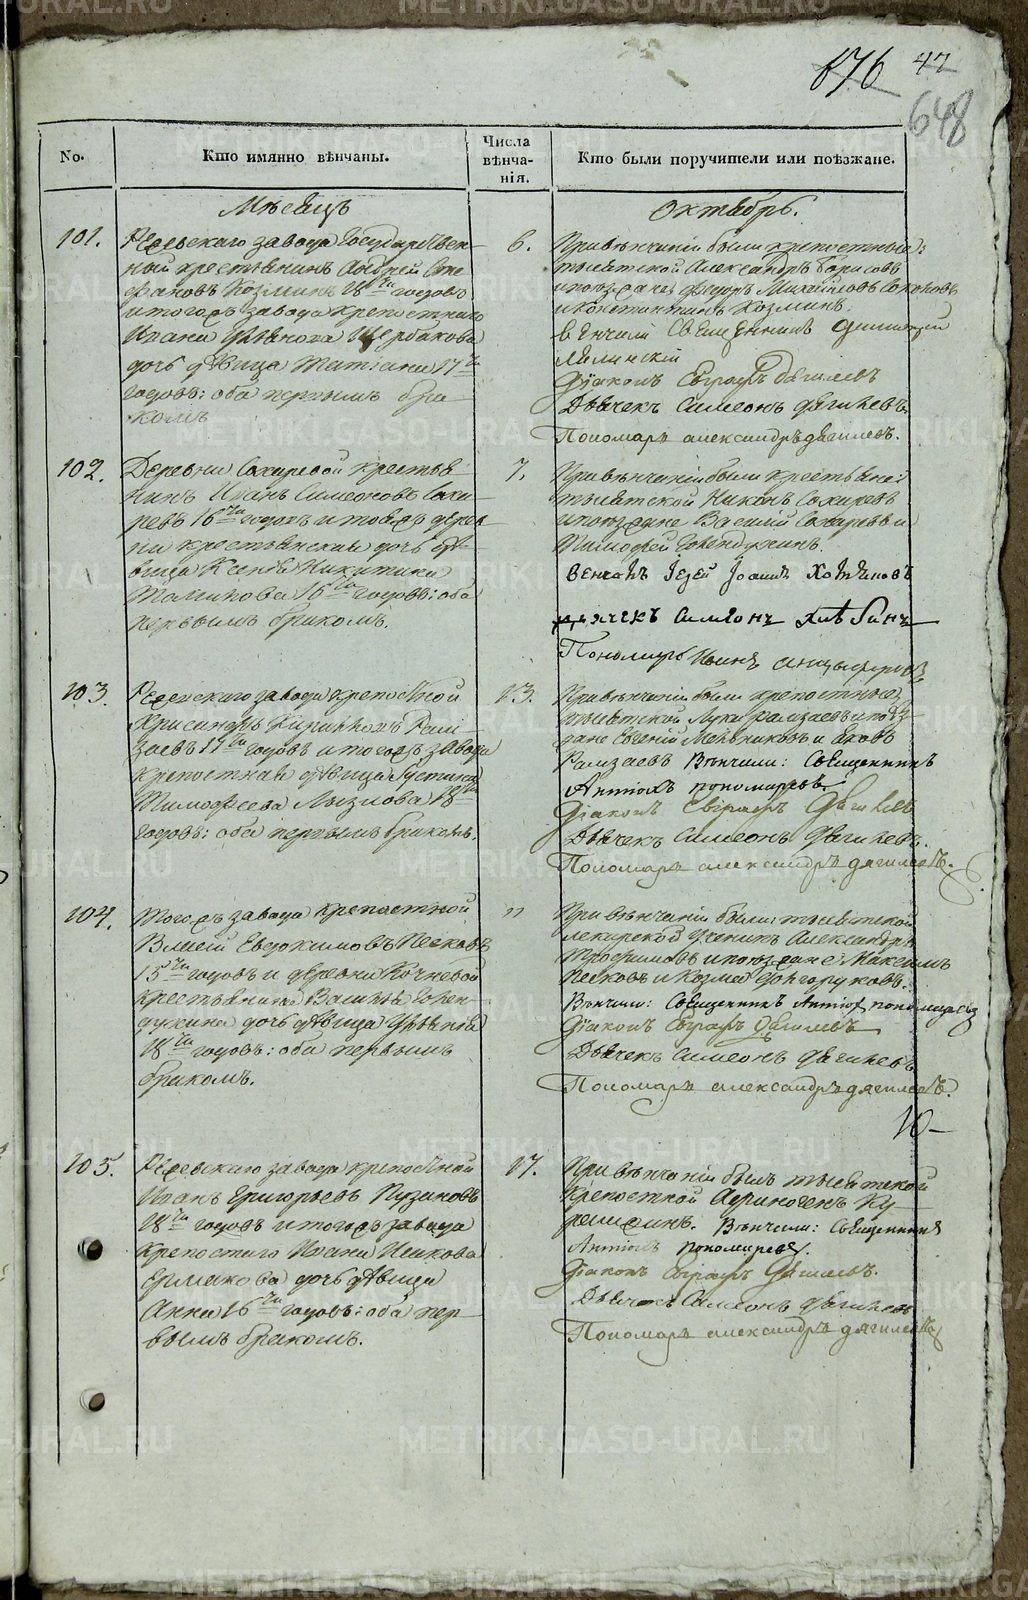 176 47
648
No.
Кто имянно вѣнчаны.
Числа
вѣнча-
нія.
Кто были поручители или поѣзжане.
Мѣсяцъ
Октябрь.
101.
Режевскаго завода Государствен-
ный крестьянинъ Андрей Сте
фановъ Козминъ 18ти годовъ
и тогожъ завода крепостнаго
Ивана Щербакова
дочь дѣвица Татіана 17ти
годовъ: оба первымъ бра
комъ
6.
При вѣнчаніи были крепостныя:
тысятской Александръ Борисовъ
и поѣзжане Федоръ Михайловъ
и Константинъ Козминъ.
вѣнчали Священникъ Димитрій
Діаконъ Евграфъ Дягилевъ
Дьячекъ Симеонъ Дягилевъ.
Пономарь александръ дягилевъ.
102.
Деревни Сохаревой крестья
нинъ Иванъ Симеоновъ Соха-
ревъ 16ти годовъ и тояжъ дерев
ни крестьянская дочь дѣ-
вица Ксенія Никитина
16ти годовъ: оба
первымъ бракомъ.
7.
При вѣнчаніи были крестьяне:
тысятской Никонъ Сохаревъ
и поѣзжане Василій Сохаревъ и
Тимофей
вѣнчалъ Іерей Іоаннъ
дьячекъ симеонъ
Пономарь
103.
Режевскаго завода крепостной
Крисанфъ Рам
заевъ 17ти годовъ и тогожъ завода
крепостная дѣвица Іустина
Тимофеева 18ти
годовъ: оба первымъ бракомъ.
13.
При вѣнчаніи были крепостныя
тысятской Лука рамзаевъ и поѣз-
жане Евгеній Мельниковъ и Яковъ
Рамзаевъ Вѣнчали: Священникъ
Антіохъ пономаревъ
Діаконъ Евграфъ Дягилевъ
Дьячекъ Симеонъ Дягилевъ.
Пономарь александръ дягилевъ.
104.
Тогожъ завода крепостной
Евдокимовъ Песковъ
15ти годовъ и деревни Кочневой
крестьянина Василья Горен-
дукина дочь дѣвица
18ти годовъ: оба первымъ
бракомъ.
"
При вѣнчаніи были: тысятской
лекарской ученикъ Александръ
Трофимовъ и поѣзжане: Максимъ
Песковъ и Козма Долгоруковъ.
Вѣнчали: Священникъ Антіохъ пономаревъ
Діаконъ Евграфъ Дягилевъ
Дьячекъ Симеонъ Дягилевъ.
Пономарь александръ дягилевъ.
10—
105.
Режевскаго завода крепостной
Иванъ Григорьевъ Пузановъ
18ти годовъ и тогожъ завода
крепостнаго Ивана
Ермакова дочь дѣвица
Анна 16ти годовъ: оба пер-
вымъ бракомъ.
17.
При вѣнчаніи былъ тысятской
крепостной Афиногенъ Ку
Вѣнчали: Священникъ
Антіохъ пономаревъ.
Діаконъ Евграфъ Дягилевъ.
Дьячекъ Симеонъ Дягилевъ
Пономарь александръ дягилевъ
METRIKI.GASO-URAL.RU